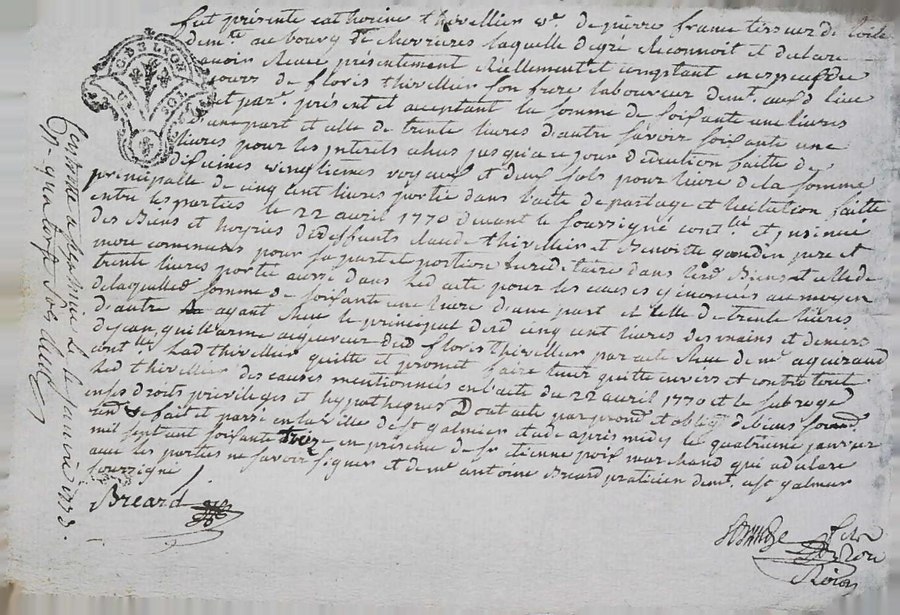 fut présente catherine thivellier ve. de pierre france tisseur de toile
demte. au bourg de chevrieres laquelle de gre reconnoit et declare
avoir receu présentement réellement et comptant en especes de
cours de floris thivellier son frere laboureur demt. aud lieu
et par. présent et acceptant la somme de soixante une livres
d'une part et celle de trente livres d'autre savoir soixante une
livres pour les interets echus jusqu'a ce jour déduction faitte de
dixiemes vingtiemes royaux et deux sols pour livre de la somme
principalle de cinq cent livres portée dans l'acte de partage et licitation faitte
entre les parties le 22 avril 1770 devant le soussigné et
des Biens et hoiries des deffunts claude thivellier et Benoitte gondin pere et
mere communs pour sa part et portion hereditaire dans lesd Biens et celle de
trente livres portée aussi dans led acte pour les causes y enoncees au moyen
delaquelle somme de soixante une livre d'une part et celle de trente livres
d'autre ayant receu le principal desd cinq cent livres des mains et deniers
de jean guillarme acquereur dud floris thivellier par acte receu de me
lad thivellier quitte et promet faire tenir quitte envers et contre tout
led thivellier des causes mentionnées en l'acte du 22 avril 1770 et le subroge
en ses droits privileges et hypotheques Dont acte par prom. et oblig. de biens soum.
fait et passé en la ville de st galmier etude apres midy le quatrieme janvier
mil sept cent soixante treze en présence de sr etienne poix marchand qui a declare
avec les parties ne savoir signer et de me antoine Breard praticien demt. a st galmier
soussigné
Breard
G. DE LYON
UN SOL
le janvier 1773.